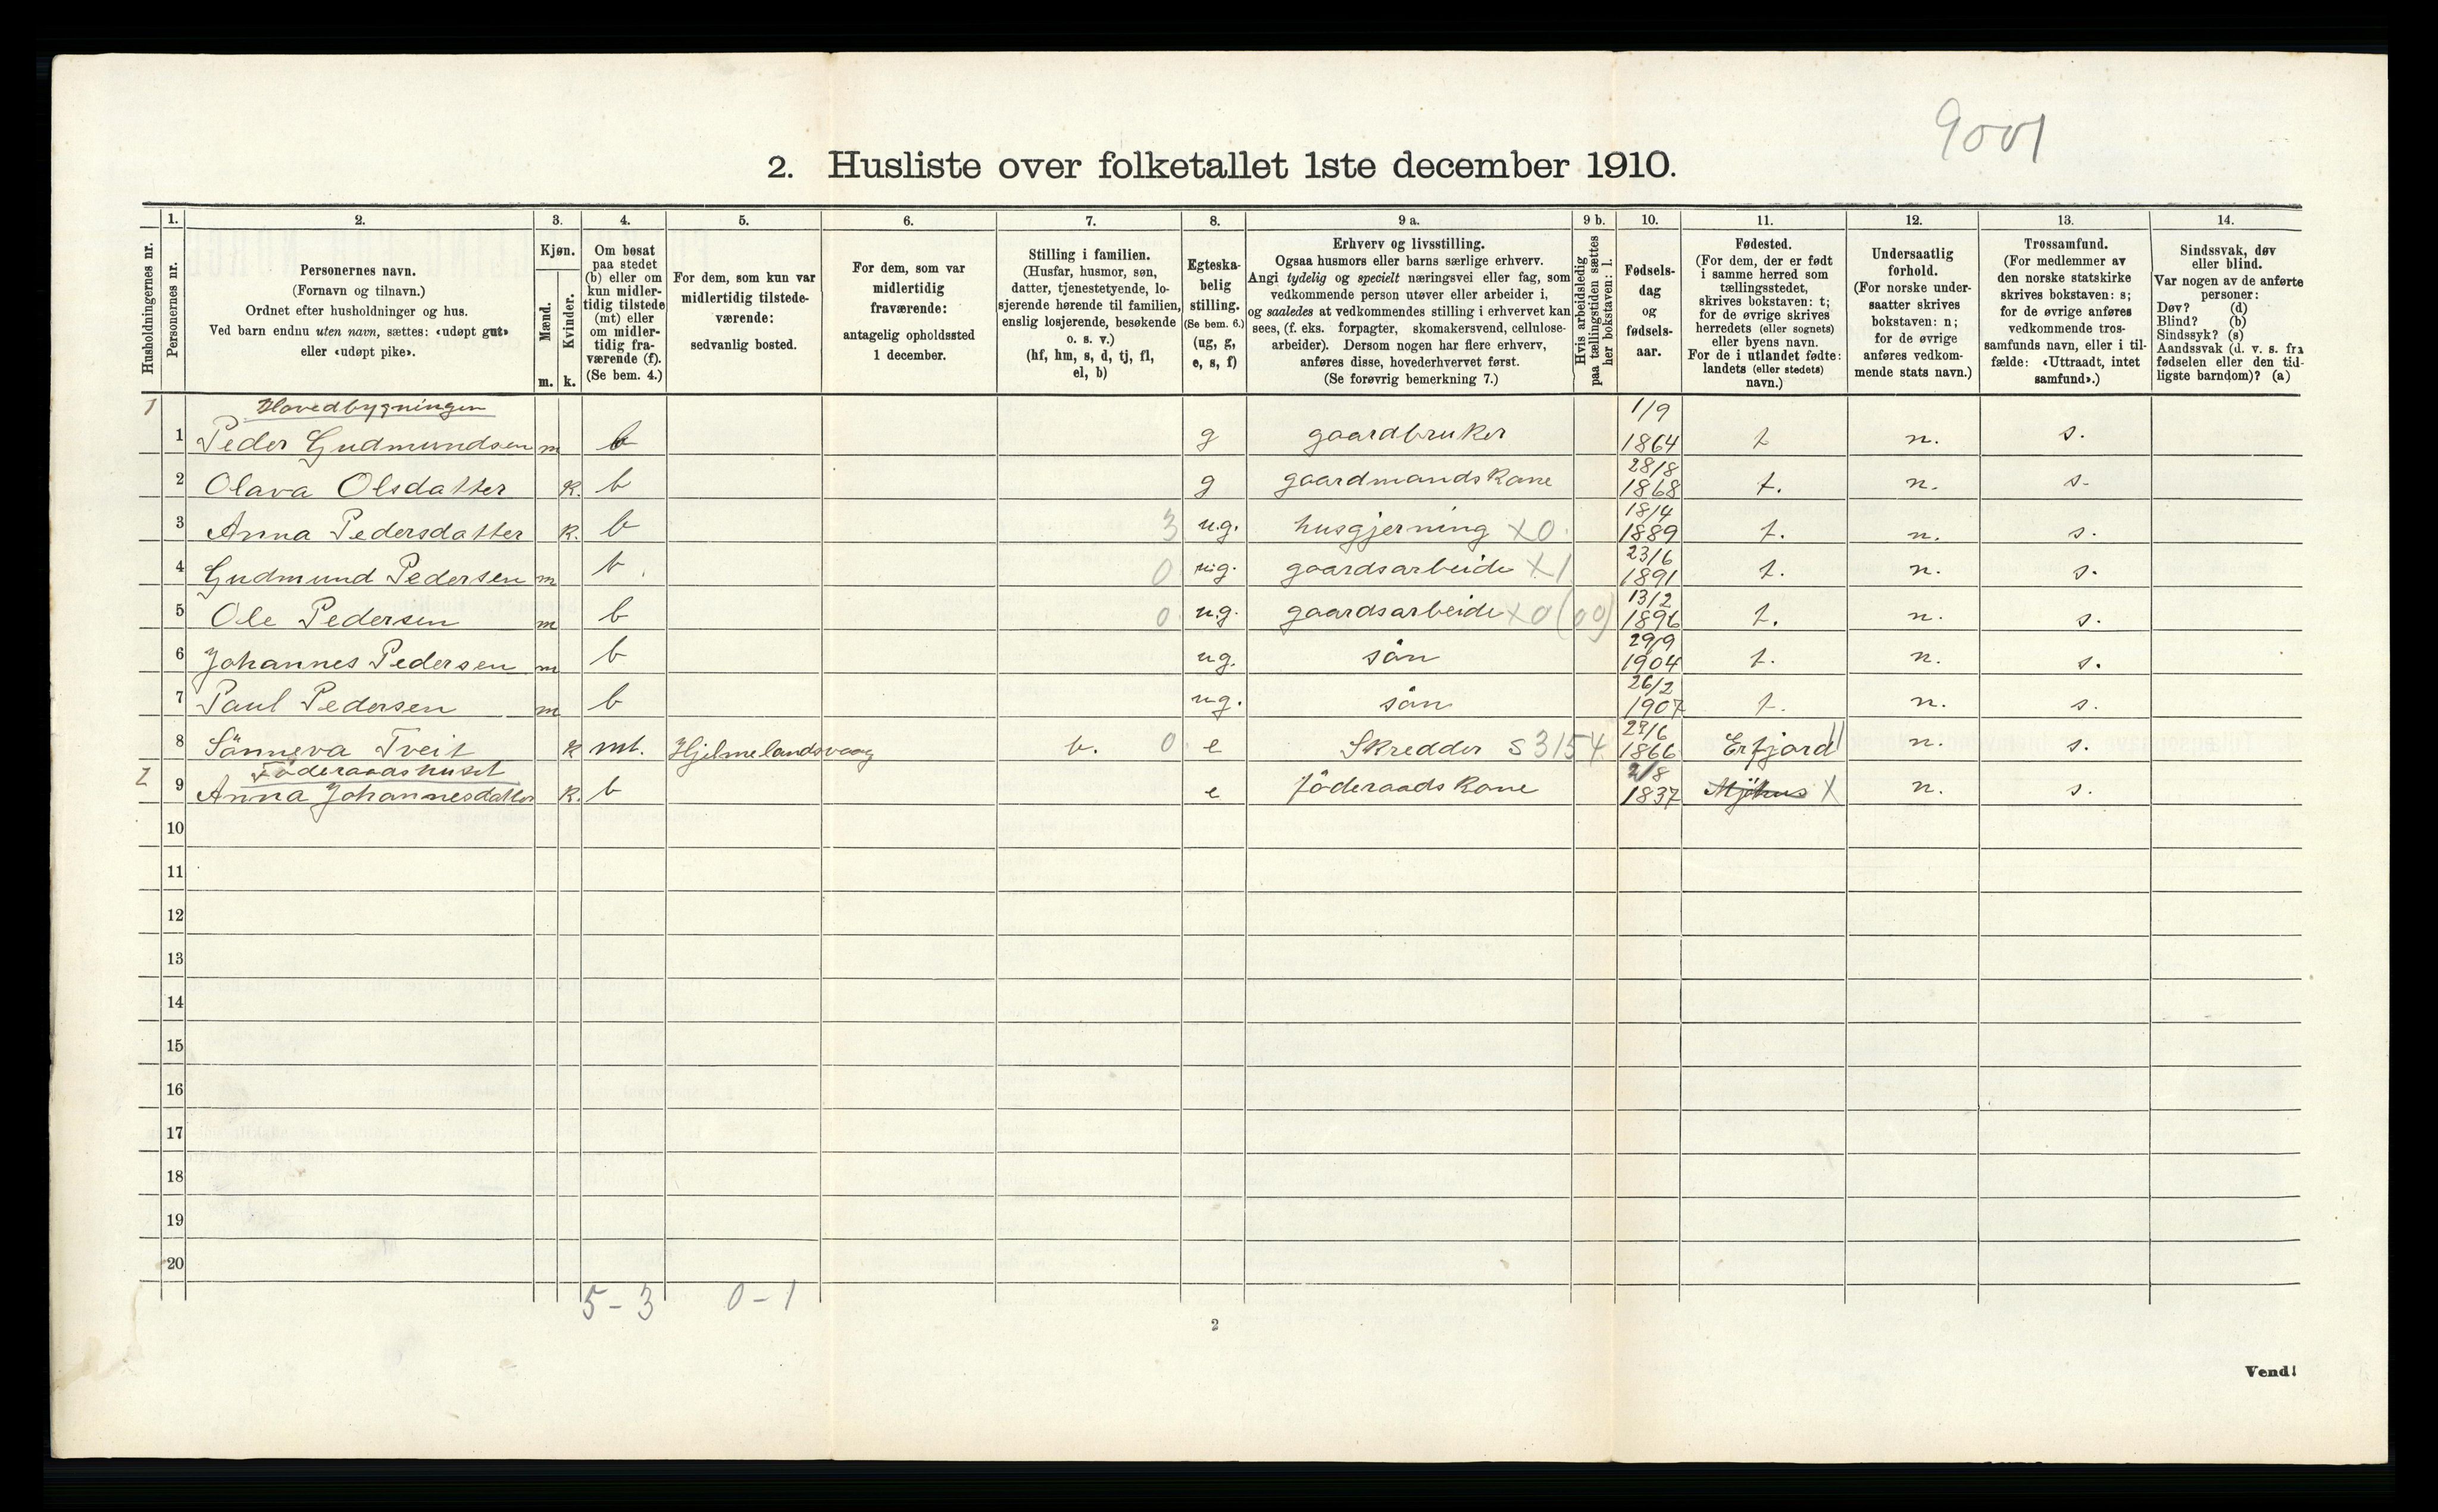 9001
2. Husliste over folketallet 1ste december 1910.
Husholdningernes nr.
1.
Personernes nr.
2.
Personernes navn.
(Fornavn og tilnavn.)
Ordnet efter husholdninger og hus.
Ved barn endnu uten navn, sættes: «udøpt gut»
eller «udøpt pike».
3.
Kjøn.
Mænd.
Kvinder.
m. k.
4.
Om bosat
paa stedet
(b) eller om
kun midler-
tidig tilstede
(mt) eller
om midler-
tidig fra-
værende (f).
(Se bem. 4.)
5.
For dem, som kun var
midlertidig tilstede-
værende:
sedvanlig bosted.
6.
For dem, som var
midlertidig
fraværende:
antagelig opholdssted
1 december.
7.
Stilling i familien.
(Husfar, husmor, søn,
datter, tjenestetyende, lo-
sjerende hørende til familien,
enslig losjerende, besøkende
o. s. v.)
(hf, hm, s, d, tj, fl,
el, b)
8.
Egteska-
belig
stilling.
(Se bem. 6.)
(ug, g,
e, s, f)
9 a.
Erhverv og livsstilling.
Ogsaa husmors eller barns særlige erhverv.
Angi tydelig og specielt næringsvei eller fag, som
vedkommende person utøver eller arbeider i,
og saaledes at vedkommendes stilling i erhvervet kan
sees, (f. eks. forpagter, skomakersvend, cellulose-
arbeider). Dersom nogen har flere erhverv,
anføres disse, hovederhvervet først.
(Se forøvrig bemerkning 7.)
9 b.
Hvis arbeidsledig
paa tællingstiden sættes
her bokstaven: l.
10.
Fødsels-
dag
og
fødsels-
aar.
11.
Fødested.
(For dem, der er født
i samme herred som
tællingsstedet,
skrives bokstaven: t;
for de øvrige skrives
herredets (eller sognets)
eller byens navn.
For de i utlandet fødte:
landets (eller stedets)
navn.)
12.
Undersaatlig
forhold.
(For norske under-
saatter skrives
bokstaven: n;
for de øvrige
anføres vedkom-
mende stats navn.)
13.
Trossamfund.
(For medlemmer av
den norske statskirke
skrives bokstaven: s;
for de øvrige anføres
vedkommende tros-
samfunds navn, eller i til-
fælde: «Uttraadt, intet
samfund».)
14.
Sindssvak, døv
eller blind.
Var nogen av de anførte
personer:
Døv? (d)
Blind? (b)
Sindssyk? (s)
Aandssvak (d. v. s. fra
fødselen eller den tid-
ligste barndom)? (a)
1 Hovedbygningen
1 Peder Gudmundsen m b g gaardbruker 1/9 1864 t n. s.
2 Olava Olsdatter k. b g gaardmandskone 28/8 1868 t. n. s.
3 Anna Pedersdatter k. b 3 u.g. husgjerning X0 18/4 1889 t. n. s.
4 Gudmund Pedersen m b 0 u.g. gaardsarbeide X1 23/6 1891 t. n. s.
5 Ole Pedersen m b 0 u.g. gaardsarbeide X0 (00) 13/2 1896 t. n. s.
6 Johannes Pedersen m b ug. sön 29/9 1904 t. n. s.
7 Paul Pedersen m b u.g. sön 26/2 1907 t. n. s.
8 Sönneva Tveit k mt. Hjelmelandsvaag b. 0 e Skredder S 3154 1866 Erfjord n. s.
2 Föderaadshuset
9 Anna Johannesdatter k. b e föderaadskone 2/8 1837 X n. s.
10
11
12
13
14
15
16
17
18
19
20
5-3 0-1
2
Vend!